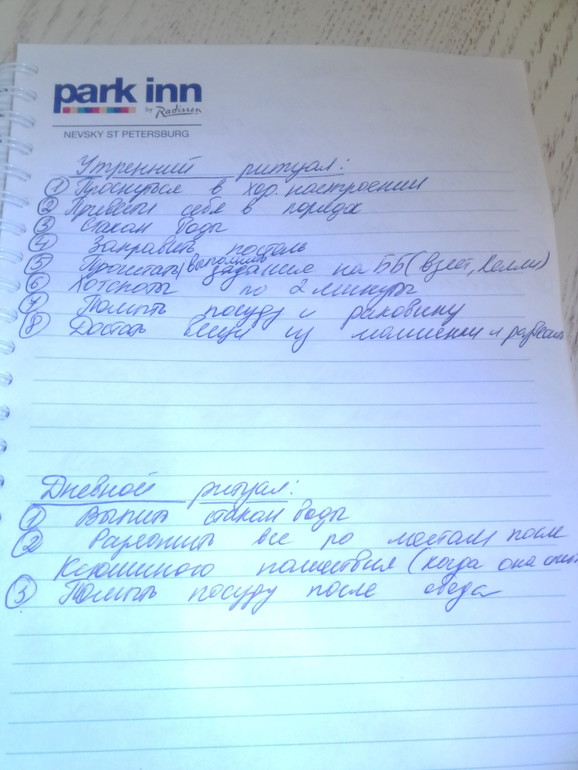 park inn
by Radisson
NEVSKY ST PETERSBURG
Утренний ритуал:
① Проснуться в хор. настроении
② Привести себя в порядок
③ Стакан воды
④ Заправить постель
⑤ Прочитать/выполнить задание на ББ (взлет, Келли)
⑥ Хотспоты по 2 минуты
⑦ Помыть посуду и раковину
⑧ Достать вещи из машинки и развесить
Дневной ритуал:
① Выпить стакан воды
② Разложить все по местам после
Ксюшиного нашествия (когда она спит
③ Помыть посуду после обеда